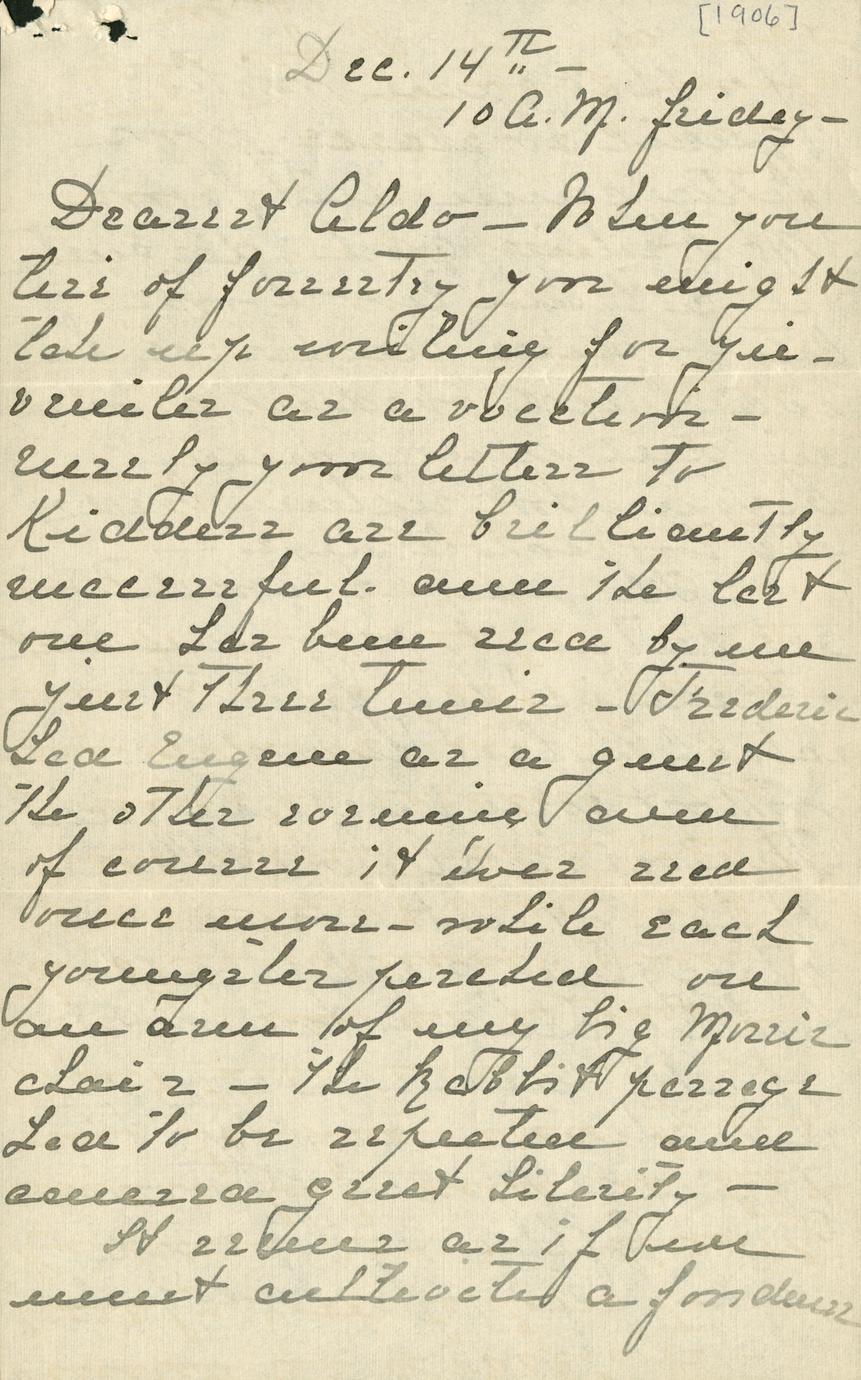 [1906]
Dec. 14th —
10 A.M. Friday —
Dearest Aldo — When you
tire of forestry you might
take up writing for ju-
veniles as a vocation —
surely your letters to
Kidders are brilliantly
successful. and the last
one has been read by me
just three times — Frederic
had Eugene as a guest
the other evening and
of course it was read
once more — while each
youngster perched on
an arm of my big Morris
chair — The Rabbit passage
had to be repeated and
caused great hilarity —
It seems as if we
must cultivate a fondness